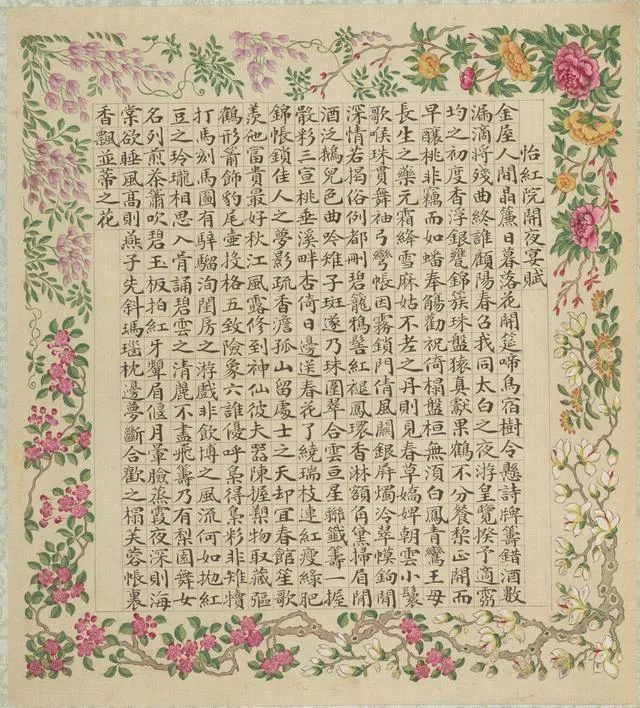 怡紅院開夜宴賦
金屋人閒晶簾日暮落花開筵啼鳥宿樹令懸詩牌籌錯酒數
漏滴將殘曲終誰顧陽春召我同太白之夜游皇覽揆予適靈
均之初度香浮銀甕錦簇珠盤猿真獻果鶴不分餐棃正開而
早釀桃非竊而如蟠奉觴勸祝倚榻盤桓無須白鳳青鸞王母
長生之藥元霜絳雪麻姑不老之丹則見春草嬌婢朝雲小鬟
歌喉珠貫舞袖弓彎帳因霧鎖門倩風關銀屏燭冷翠幙鉤閒
深情若揭俗例都刪碧籠鴉髻紅褪鳳環香淋額角黛掃眉間
酒泛鵝兒色曲吟雉子斑遂乃珠圍翠合雲亘星聯籤籌一握
骰彩三宣桃垂溪畔杏倚日邊送春花了繞瑞枝連紅瘦綠肥
錦帳鎖佳人之夢影疏香澹孤山留處士之天却宜春館笙歌
羨他富貴最好秋江風露修到神仙彼夫器陳握槊物取藏彄
鶴形箭飾豹尾壺投格五致險象六誰優呼梟得梟彩非雉犢
打馬刻馬圖有騂騮洵閨房之游戲非飲博之風流何如抛紅
豆之玲瓏相思入骨誦碧雲之清麗不盡飛籌乃有棃園舞女
名列煎茶簫吹碧玉板拍紅牙顰眉偃月暈臉蒸霞夜深則海
棠欲睡風高則燕子先斜瑪瑙枕邊夢斷合歡之榻芙蓉帳裏
香飄並蒂之花